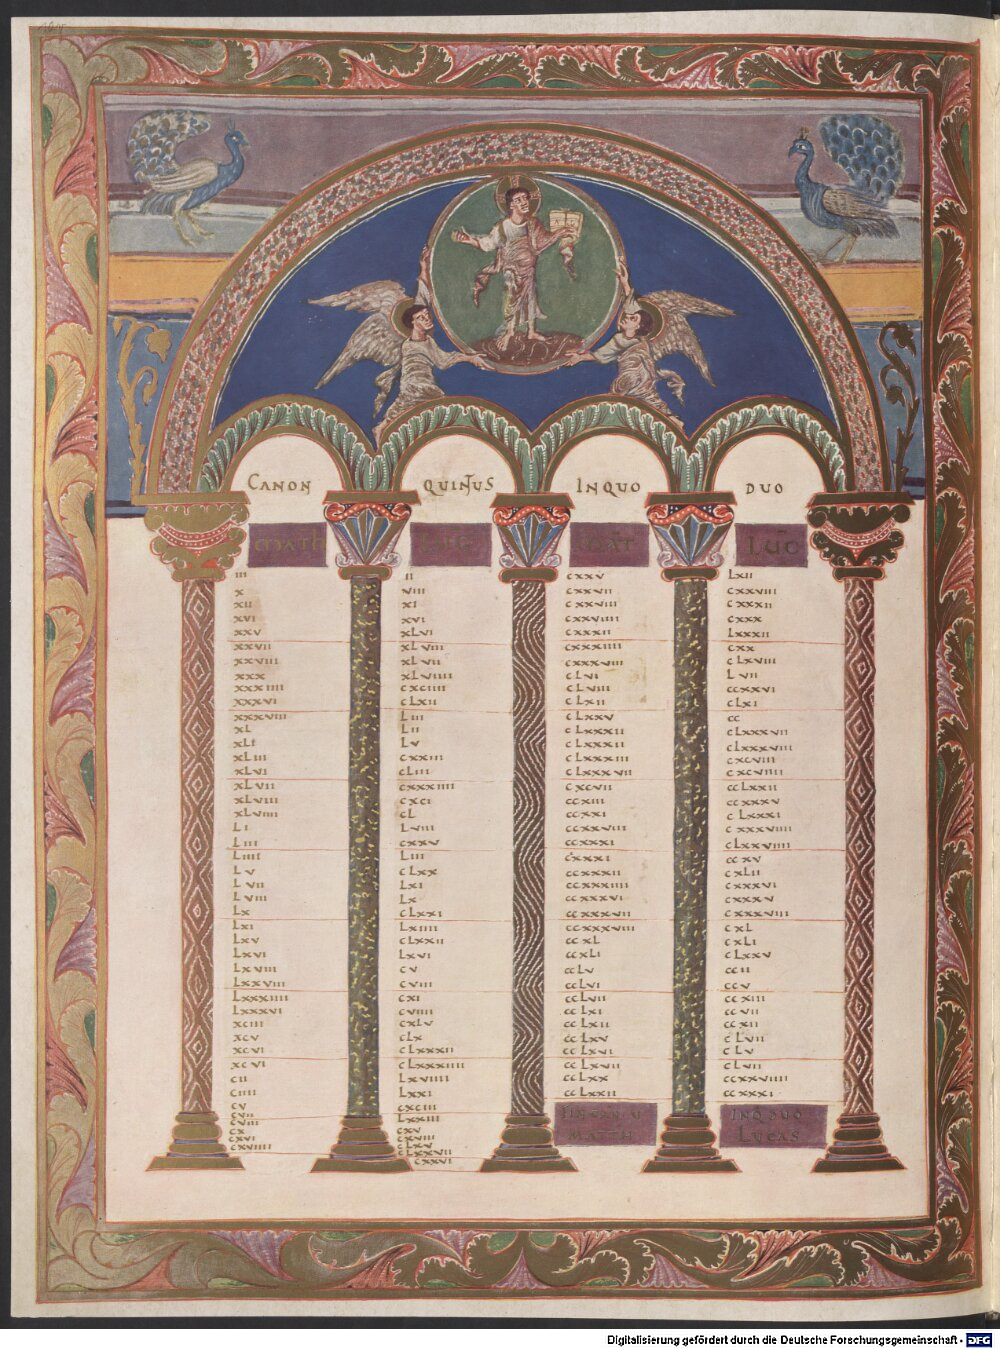 CANON QUINTUS INQUO DUO
MATH
III
X
XII
XVI
XXV
XXVII
XXVIII
XXX
XXXIIII
XXXVI
XXXVIII
XL
XLI
XLIII
XLVI
XLVII
XLVIII
XLVIIII
LI
LIII
LIIII
LV
LVII
LVIII
LX
LXI
LXV
LXVI
LXVIII
LXXVIII
LXXXIIII
LXXXVI
XCIII
XCV
XCVI
XCVI
CII
CIIII
CV
CVII
CVIII
CX
CXVI
CXVIIII
LUC
II
VIII
XI
XVI
XLVI
XLVIII
XLVII
XLVIIII
CXCIIII
CLXII
LIII
LII
LV
CXXIII
CLIII
CXXXIIII
CXCI
CL
LVIII
CXXV
LIII
CLXX
LXI
LX
CLXXI
LXIIII
CLXXII
LXVI
CV
CVIII
CXI
CVIIII
CXLV
CLX
CLXXXII
CLXXXIIII
LXVIIII
LXXI
CXCIII
LXXIII
CXV
CXVIII
CLXV
CLXXVII
CXXVI
MAT
CXXV
CXXVII
CXXVIII
CXXVIIII
CXXXII
CXXXIIII
CXXXVIII
CLVI
CLVIII
CLXII
CLXXV
CLXXXII
CLXXXII
CLXXXIII
CLXXXVII
CXCVII
CCXIII
CCXXI
CCXXVIII
CCXXXI
CXXXI
CCXXXII
CCXXXIIII
CCXXXVI
CCXXXVII
CCXXXVIII
CCXL
CCXLI
CCLV
CCLVI
CCLVII
CCLXI
CCLXII
CCLXV
CCLXVI
CCLXVII
CCLXX
CCLXXII
MATTH
LUC
LXII
CXXVIII
CXXXII
CXXX
LXXXII
CXX
CLXVIII
LVII
CCXXVI
CLXI
CC
CLXXXVII
CLXXXVIII
CXCVIII
CXCVIIII
CCLXXII
CCXXXV
CLXXXI
CXXXVIIII
CLXXVIIII
CCXV
CXLII
CXXXVI
CXXXV
CXXXVIII
CXL
CXLI
CLXXV
CCII
CCV
CCXIII
CCVII
CCXII
CLVII
CLV
CLVII
CCXXVIIII
CCXXXI
INQ DUO
LUCAS
Digitalisierung gefördert durch die Deutsche Forschungsgemeinschaft - DFG